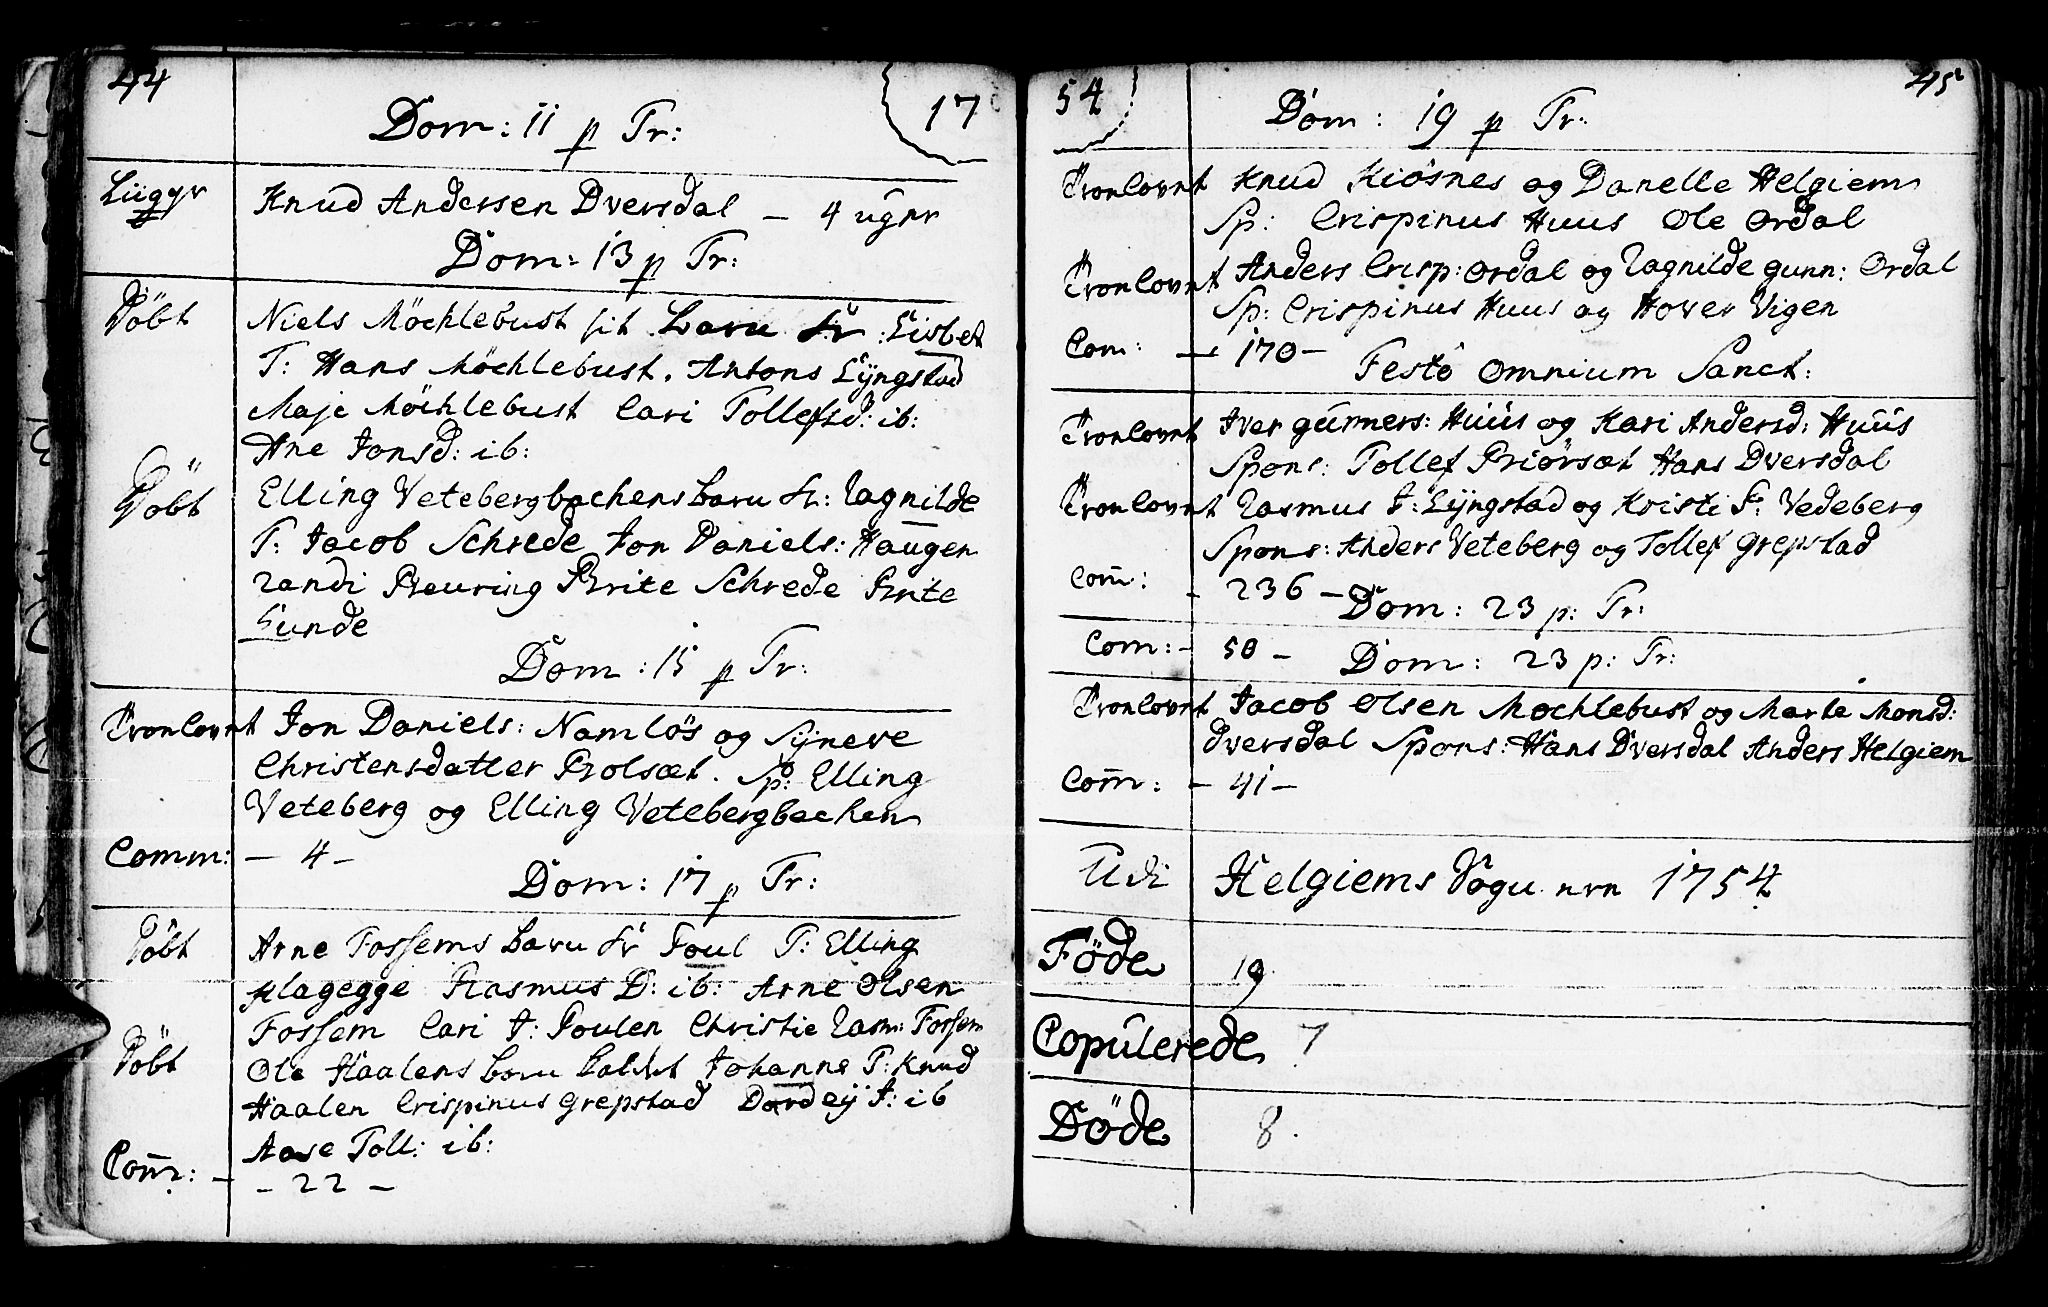 44
17
Dom: 11 p Tr:
Knud Andersen Dversdal - 4 uger
Dom: 13 p Tr:
Döbt Niels Möchlebust sit barn dr: Lisbet
T: Hans Möchlebust. Antons Lÿngstad
Maje Möchlebust Cari Tollefsd: ib:
Ane Jonsd: ib:
Döbt Elling Vetebergbachens barn dr: Ragnilde
T: Jacob Schrede Jon Daniels: Haugen
Randi Brite Schrede Brite
Sunde
Dom: 15 p Tr:
Tronlovet Jon Daniels: Namlös og Sÿneve
Christensdatter Bolsæt. Sp: Elling
Veteberg og Elling Vetebergbachen
Comm: - 4 -
Dom: 17 p Tr:
Döbt Arne Fossems barn dr Poul T: Elling
Flagegge Rasmus D: ib: Arne Olsen
Fossem Cari J: Christie Rasm: Fossem
Döbt Ole Haalens barn Johanne T: Knud
Haalen Crispinus Grepstad Dordeÿ J: ib
Aase Toll: ib:
Com: - - 22 -
54
45
Dom: 19 p Tr:
Tronlovet Knud Kiösnes og Danelle Helgiem
Sp: Crispinus Huus Ole Ordal
Tronlovet Anders Crisp: Ordal og Ragnilde Gunn: Ordal
Sp: Crispinus Huus og Hover Vigen
Com: - 170 -
Festo Omnium Sanct:
Tronlovet Iver Gunners: Huus og Kari Andersd: Huus
Spons: Tollef Hans Dversdal
Tronlovet Rasmus J: Lÿngstad og Kristi P: Vedeberg
Spons: Anders Veteberg og Tollef Grepstad
Com: - 236 -
Dom: 23 p: Tr:
Com: - 50 -
Dom: 23 p: Tr:
Tronlovet Jacob Olsen Mochlebust og Marte Monsd:
Dversdal Spons: Hans Dversdal Anders Helgiem
Com: - 41 -
Udi Helgiems Sogn ere 1754
Föde 19.
Copulerede 7
Döde 8.